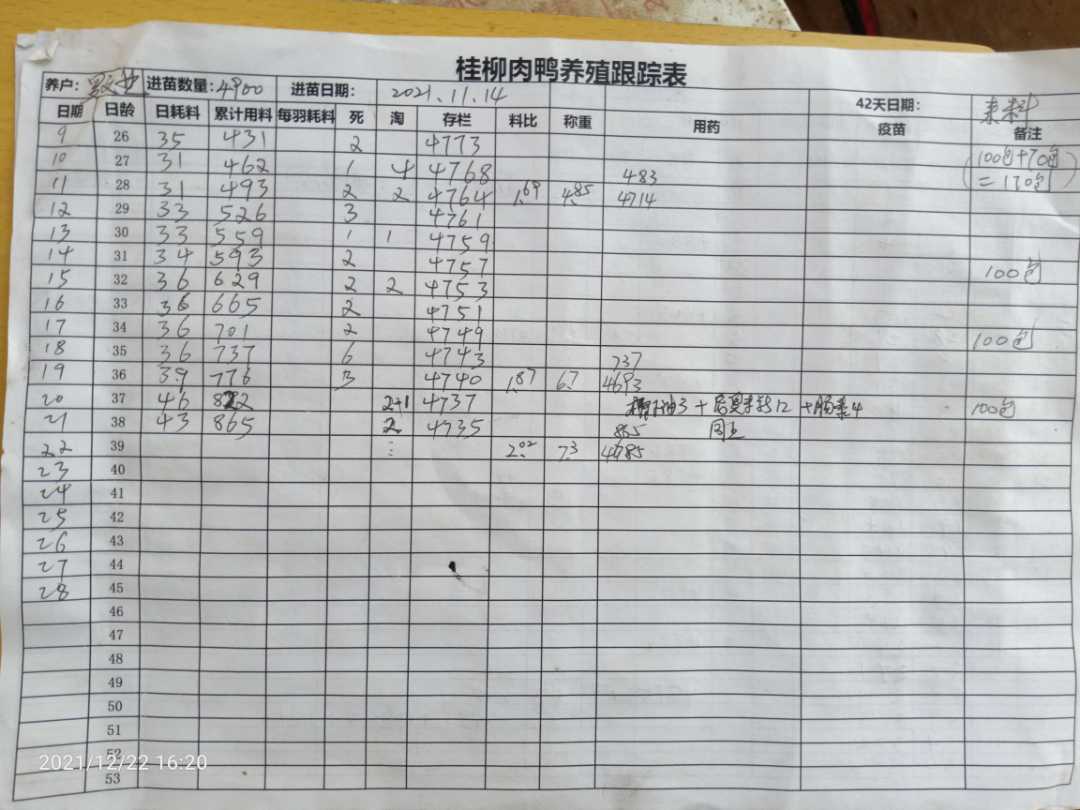 桂柳肉鸭养殖跟踪表
养户: 进苗数量:4900 进苗日期: 2021.11.14 42天日期: 来料
日期 日龄 日耗料 累计用料 每羽耗料 死 淘 存栏 料比 称重 用药 疫苗 备注
9 26 35 431 2 4773 (100包+70包
10 27 31 462 1 4 4768 483 =170包)
11 28 31 493 2 2 4764 1.69 4.85 4714
12 29 33 526 3 4761
13 30 33 559 1 1 4759
14 31 34 593 2 4757 100包
15 32 36 629 2 2 4753
16 33 36 665 2 4751
17 34 36 701 2 4749 100包
18 35 36 737 6 4743 737
19 36 39 776 3 4740 1.87 6.7 4693
20 37 46 822 2+1 4737 100包
21 38 43 865 2 4735 865 同上
22 39 2.02 7.3 4785
23 40
24 41
25 42
26 43
27 44
28 45
46
47
48
49
50
51
52
53
2021/12/22 16:20